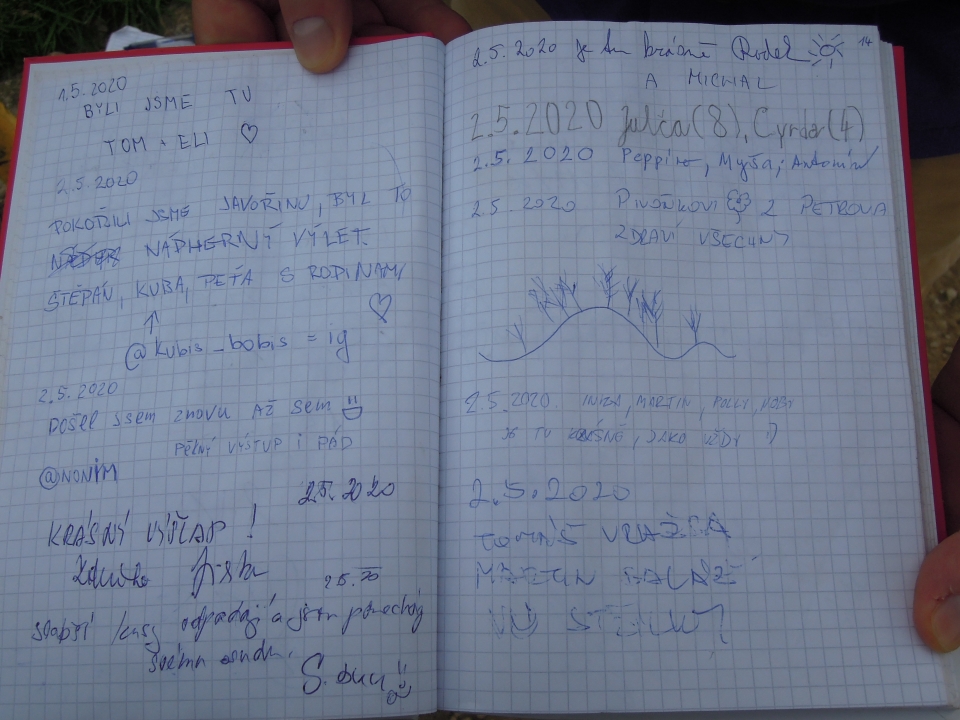 1.5.2020
BYLI JSME TU
TOM + ELI ♡
2.5.2020
POKOŘILI JSME JAVOŘINU, BYL TO
NÁDHERNÝ VÝLET
ŠTĚPÁN, KUBA, PEŤA S RODINAMI
♡
↑
@kubis_bobis = ig
2.5.2020
DOŠEL JSEM ZNOVU AŽ SEM
PĚKNÝ VÝSTUP I PÓD
@NONIM
2.5.2020
KRÁSNÝ VÝŠLAP!
2.5.20
slabší kusy odpadají a jsou ponechány
svému osudu.
14
2.5.2020 je tu krásně Radek
A MICHAL
2.5.2020 Julča (8), Cyrda (4)
2.5.2020 Peppino, Myša, Antonín
2.5.2020 PIVOŇKOVI Z PETROVA
ZDRAVÍ VŠECHNY
2.5.2020 MARTIN,
JE TU KRÁSNĚ, JAKO VŽDY :)
2.5.2020
TOMÁŠ
MARTIN BALÁŽ